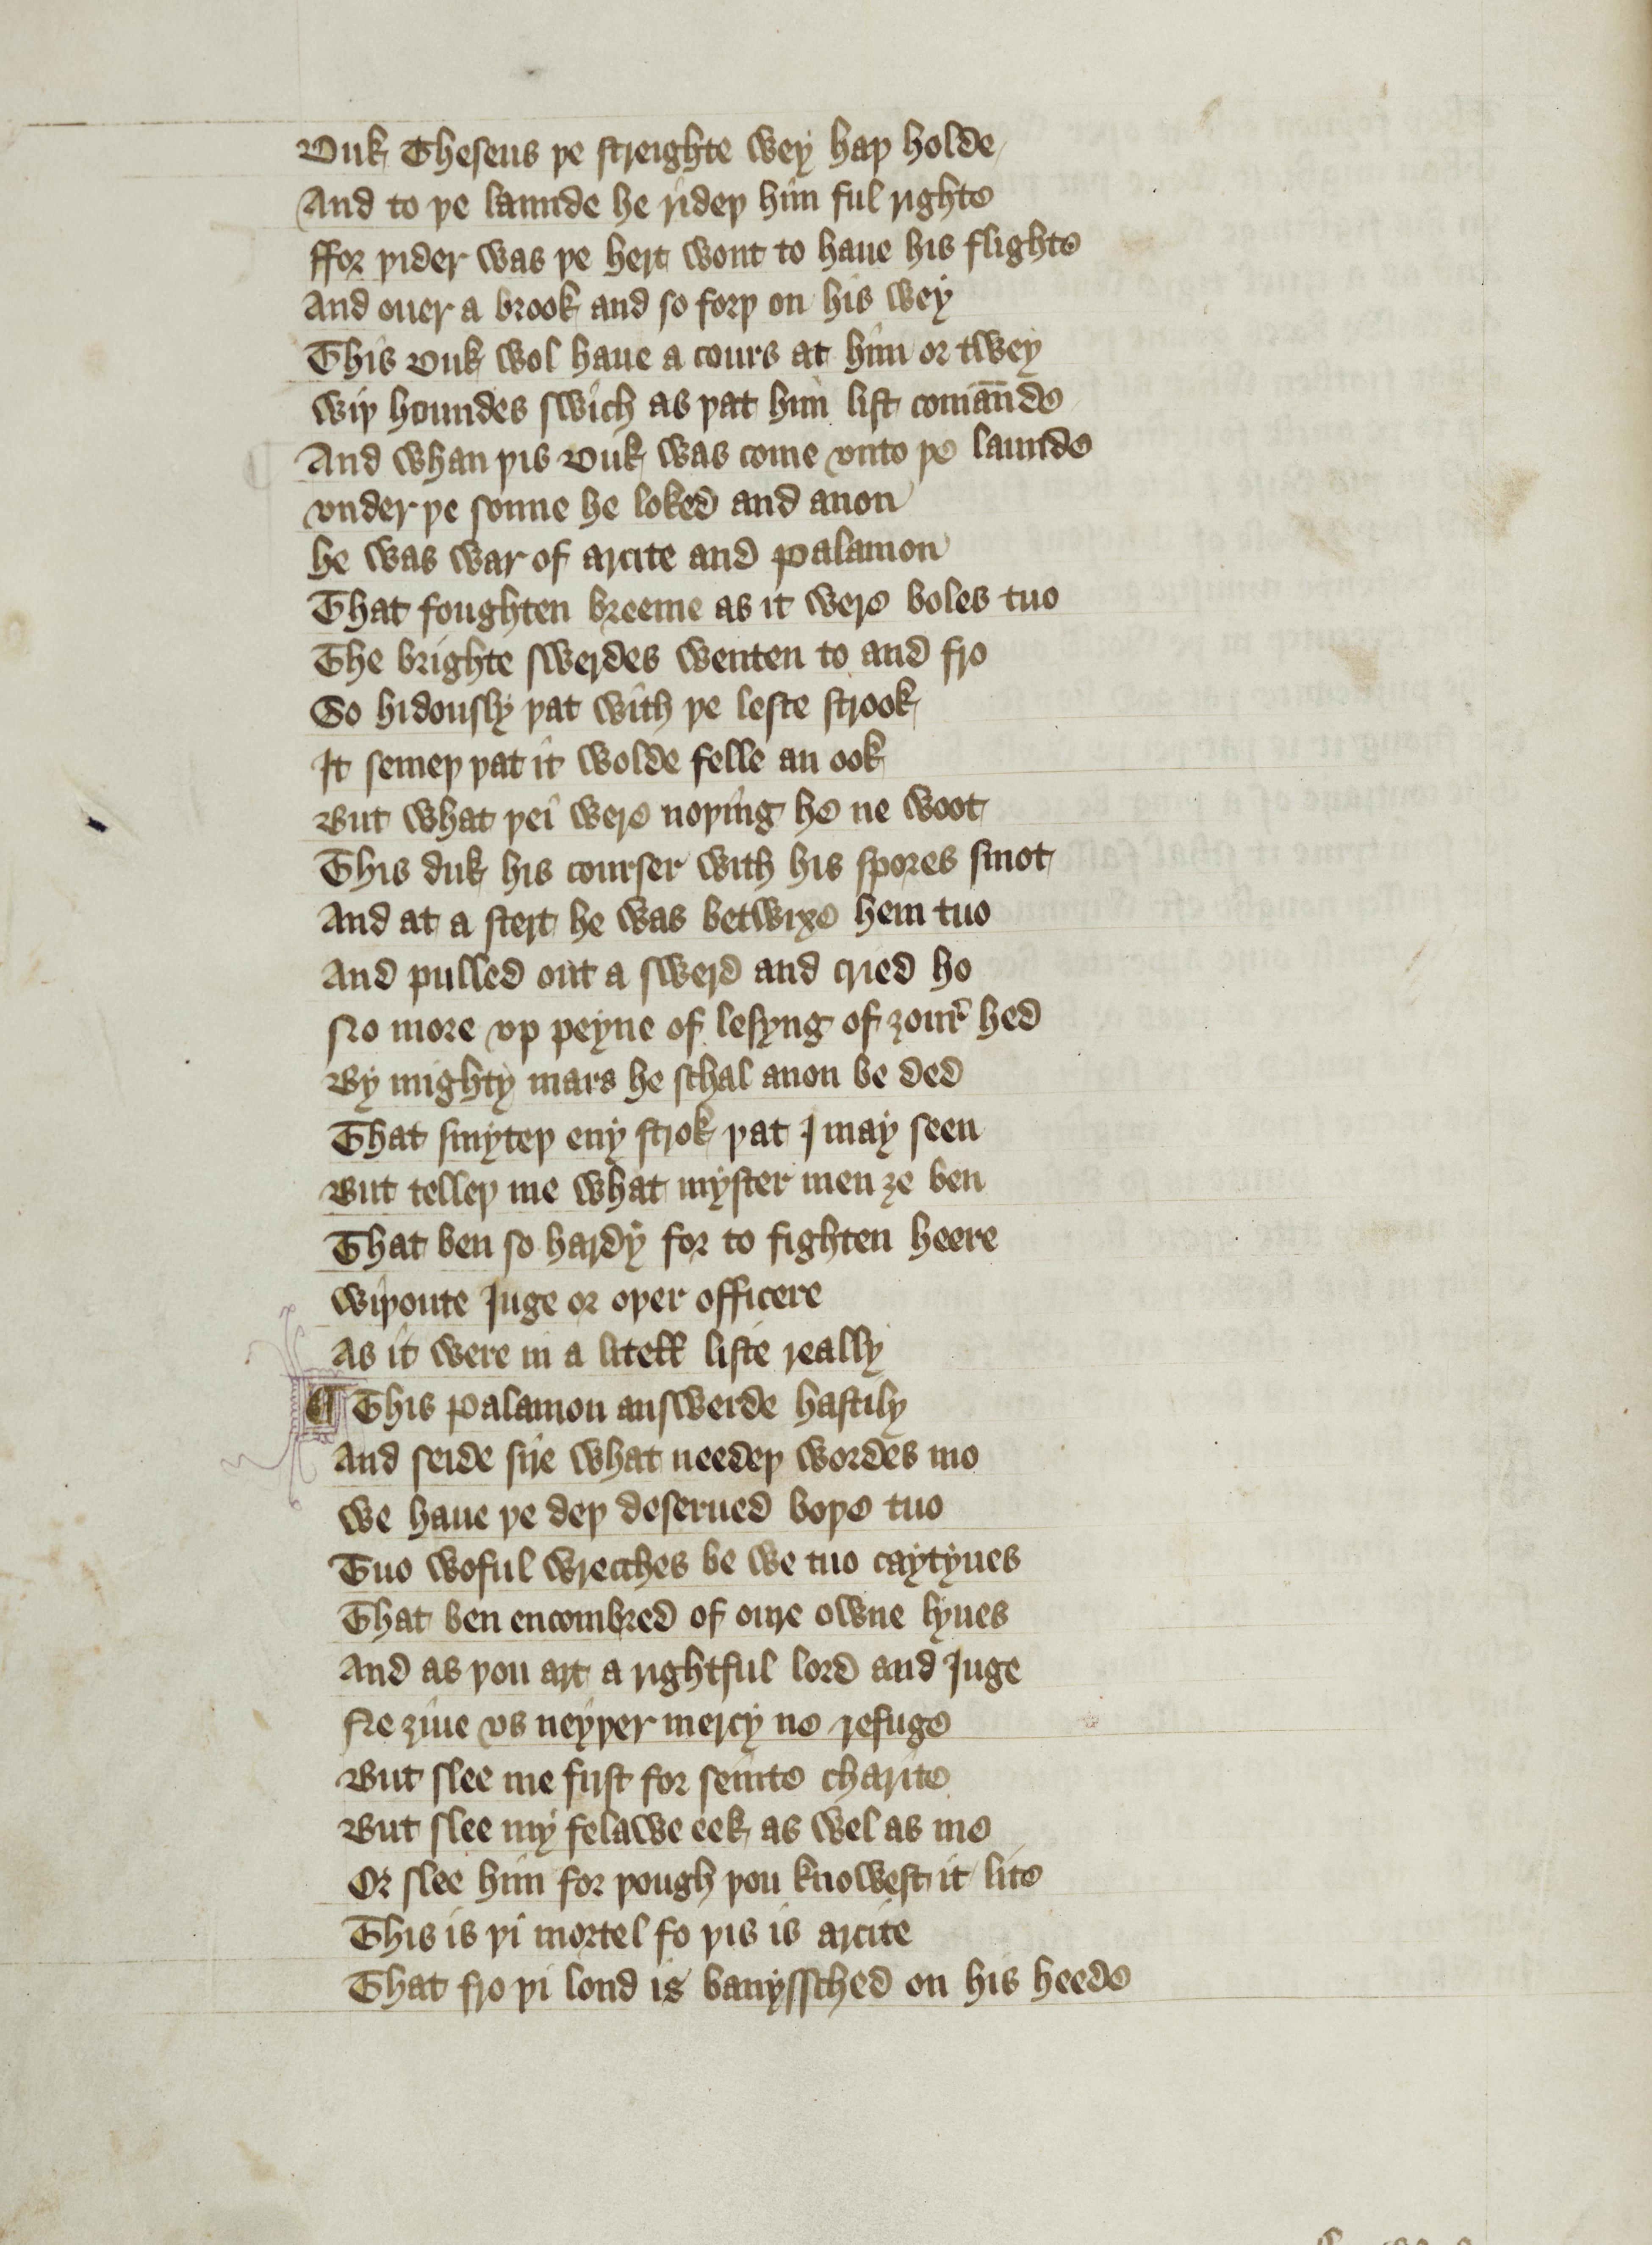 Duk Theseus þe streighte wey haþ holde
And to þe launde he rideþ him ful righte
ffor þider was þe hert wont to haue his flighte
And ouer a brook and so forþ on his wey
This Duk wol haue a cours at him or twey
wiþ houndes swich as þat him list comāūde
And whan þis Duk was come vnto þe launde
vnder þe sonne he loked and anon
he was war of arcite and palamon
That foughten breeme as it were boles tuo
The brighte swerdes wenten to and fro
So hidously þat with þe leste strook
It semeþ þat it wolde felle an ook
But what þei were noþing he ne woot
This duk his courser with his spores smot
And at a stert he was betwixe hem tuo
And pulled out a swerd and cried ho
No more vp peyne of lesyng of ȝour hed
By mighty mars he schal anon be ded
That smyteþ eny strok þat I may seen
But telleþ me what myster men ȝe ben
That ben so hardy for to fighten heere
wiþoute Juge or oþer officere
As it were in a litell liste really
¶ This palamon answerde hastily
And seide sire what needeþ wordes mo
we haue þe deþ deserued boþe tuo
Tuo woful wrecches be we tuo caytyues
That ben encombred of oure owne lyues
And as þou art a rightful lord and Juge
Ne ȝiue vs neyþer mercy ne refuge
But slee me first for seinte charite
But slee my felawe eek as wel as me
Or slee him for þough þou knowest it lite
This is þi mortel fo þis is arcite
That fro þi lond is banyssched on his heede